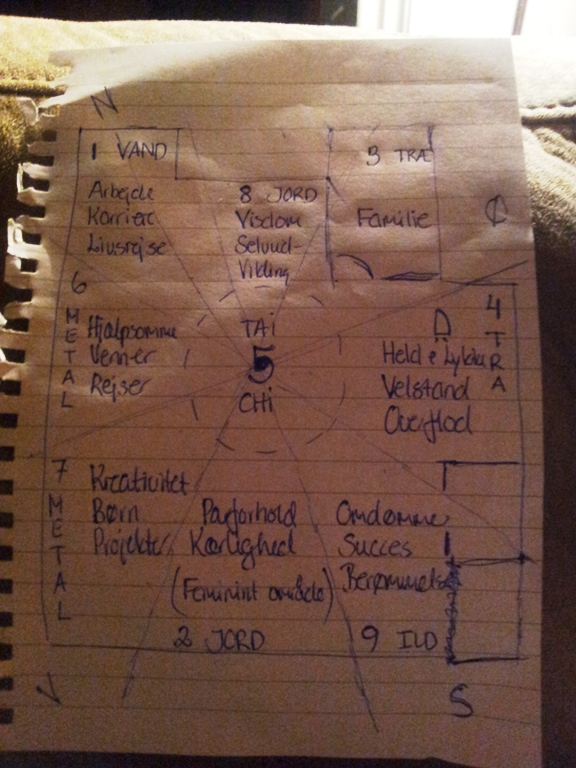 N
1 VAND
3 TRÆ
Arbejde
Karriere
Livsrejse
8 JORD
Visdom
Selvud-
Vikling
Familie
6 METAL
Hjælpsomme
Venner
Rejser
TAI
5
CHI
4 TRÆ
Held & Lykke
Velstand
Overflod
7 METAL
Kreativitet
Børn
Projekter
Parforhold
Kærlighed
(Feminint område)
Omdømme
Succes
Berømmelse
2 JORD
9 ILD
V
S